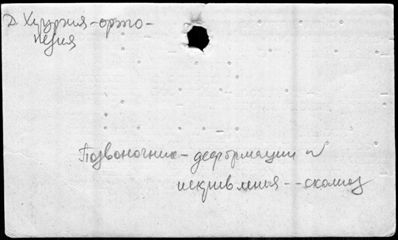 Д Хирургия-орто-
педия
Позвоночник-деформации и
искривления--сколиоз